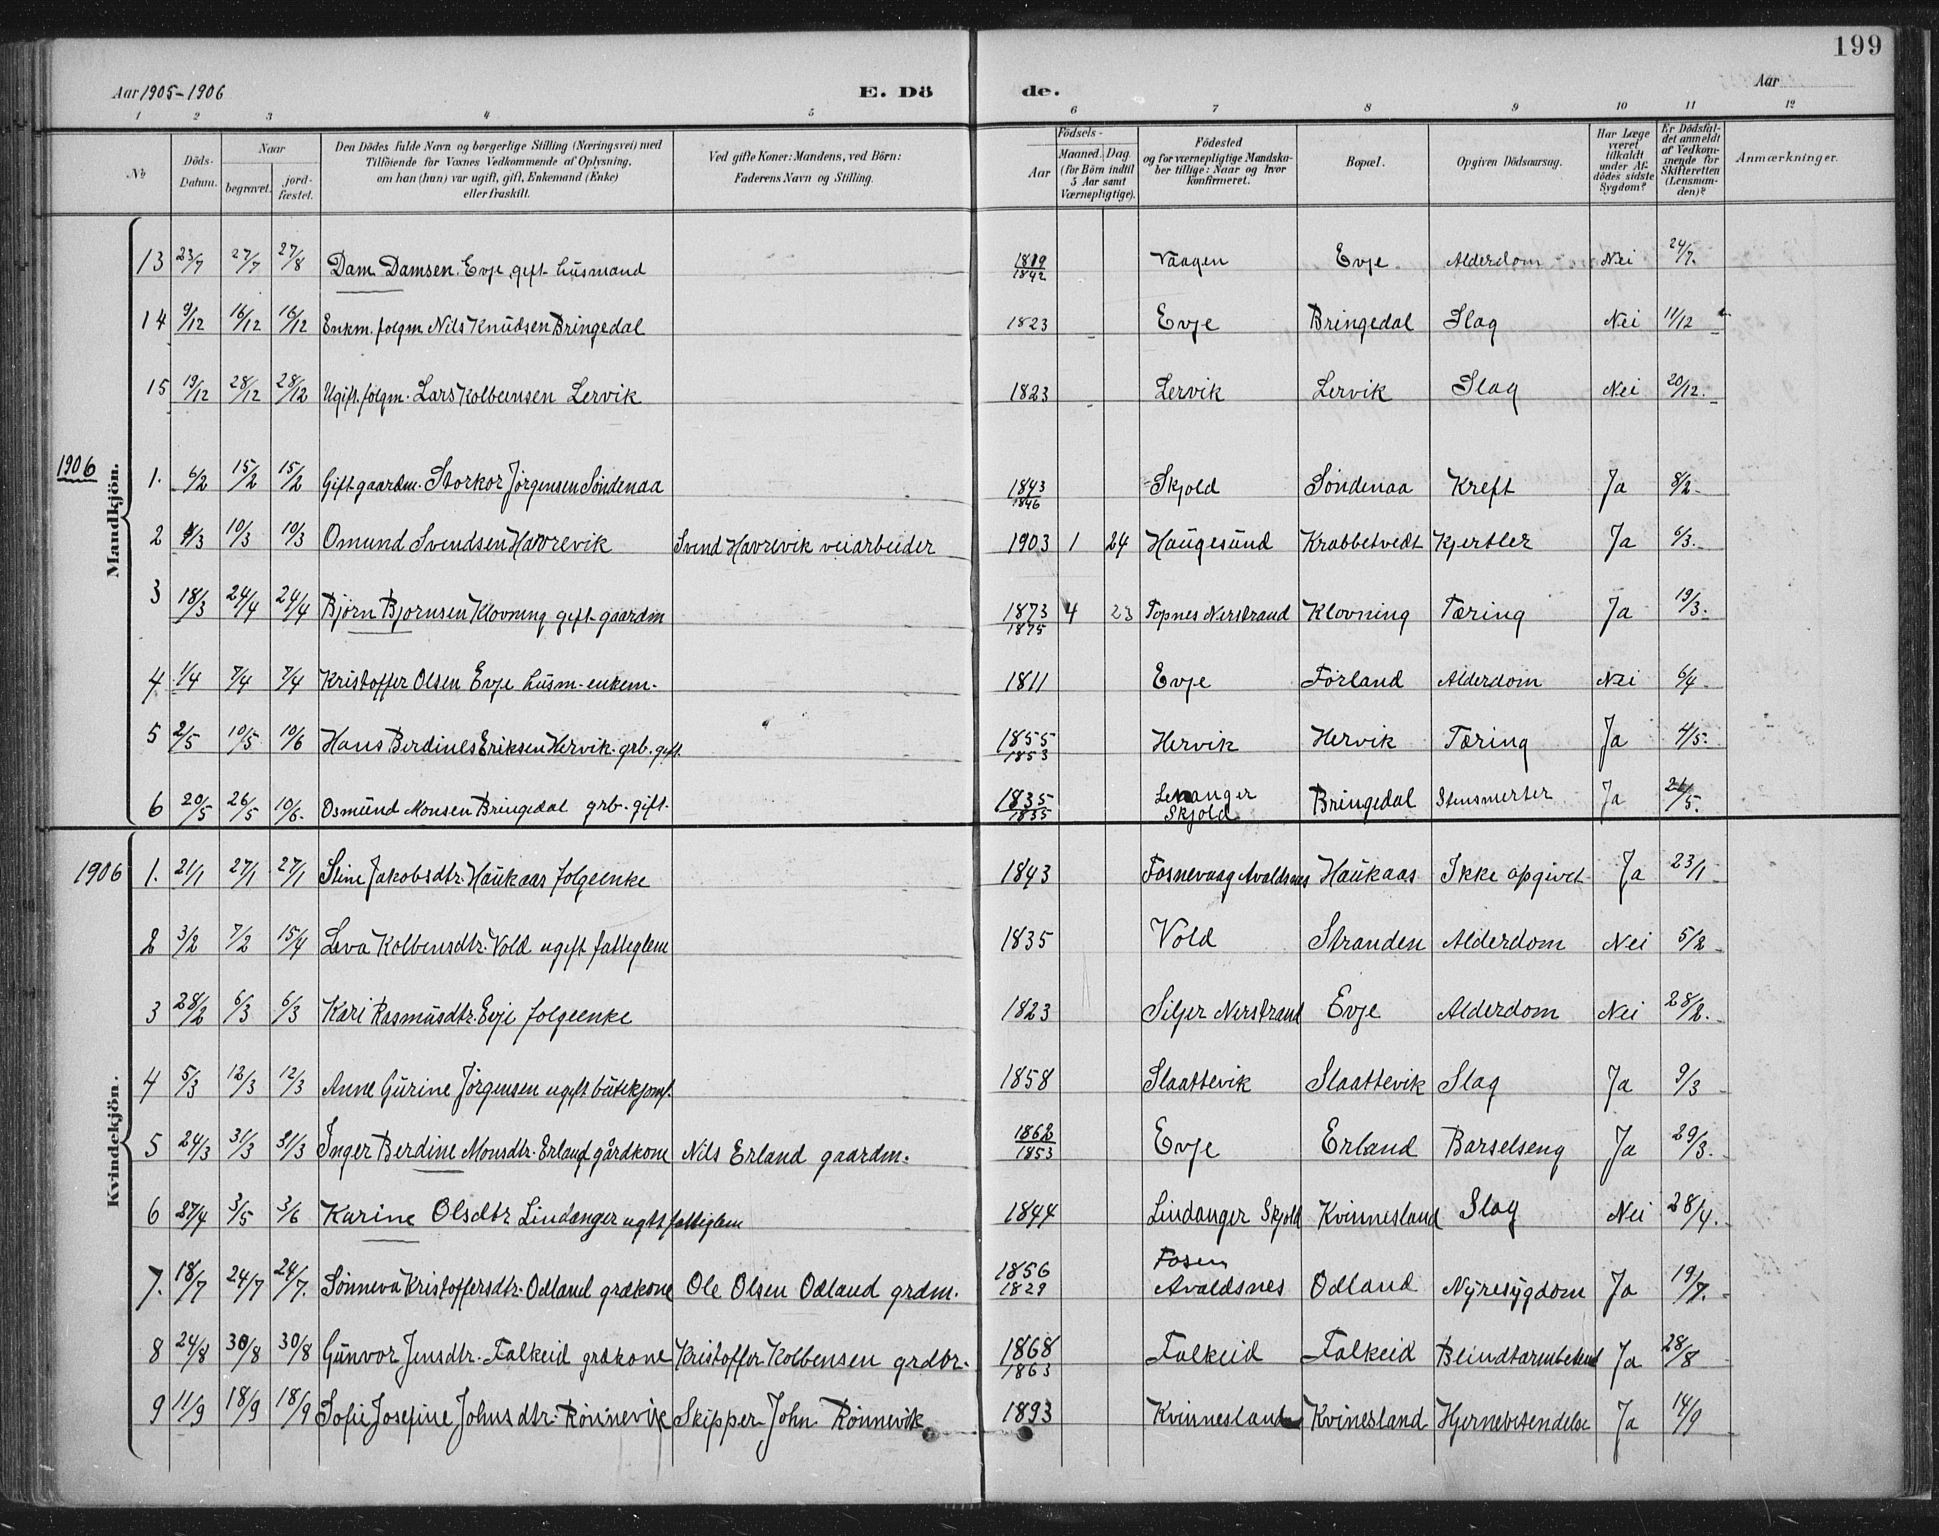 199
Aar 1905-1906 E. Dö de. Aar
1 2 3 4 5 6 7 8 9 10 11 12
No Döds-Datum. Naar begravet. jord-fæstet. Den Dödes fulde Navn og borgerlige Stilling (Næringsvei) med Tilföiende for Voxnes Vedkommende af Oplysning, om han (hun) var ugift, gift, Enkemand (Enke) eller fraskilt. Ved gifte Koner: Mandens, ved Börn: Faderens Navn og Stilling. Födsels- Aar Maaned. Dag (for Börn indtil 5 Aar samt Værnepligtige). Födested og for værnepligtige Mandskaber tillige: Naar og hvor Konfirmeret. Bopæl. Opgiven Dödsaarsag. Har Læge været tilkaldt under Afdödes sidste Sygdom? Er Dödsfaldet anmeldt af Vedkommende for Skifteretten (Lensmanden)? Anmærkninger.
Mandkjön.
13 23/7 27/7 27/8 Dam Damsen Evje gift husmand 1819 1842 Vaagen Evje Alderdom Nei 24/7.
14 9/12 16/12 16/12 Enkm. folgm Nils Knudsen Bringedal 1823 Evje Bringedal Slag Nei 11/12
15 19/12 28/12 28/12 Ugift. folgm. Lars Kolbeinsen Lervik 1823 Lervik Lervik Slag Nei 20/12.
1906
1. 6/2 15/2 15/2 Gift gaardm. Storkor Jørgensen Söndenaa 1843 1846 Skjold Söndenaa Kreft Ja 8/2
2 4/3 10/3 10/3 Omund Svendsen Havrevik Svend Havrevik veiarbeider 1903 1 24 Haugesund Krabbetvedt Kjertler Ja 6/3.
3 18/3 24/4 24/4 Bjørn Bjornsen Klovning gift gaardm 1873 1875 4 23 Topnes Nerstrand Klovning Tæring Ja 19/3.
4 1/4 7/4 7/4 Kristoffer Olsen Evje husm-enkem. 1811 Evje Førland Alderdom Nei 6/4
5 2/5 10/5 10/6 Hans Berdines Eriksen Hervik. grb. gift. 1855 1853 Hervik Hervik Tæring Ja 4/5.
6 20/5 26/5 10/6. Osmund Monsen Bringedal grb. gift. 1835 1835 Skjold Bringedal Stensmerter Ja
1906
Kvindekjön.
1. 21/1 27/1 27/1 Stine Jakobsdtr. Haukaas folgeenke 1843 Fosnevaag Avaldsnes Haukaas Ikke opgivet Ja 23/1
2 3/2 7/2 15/4 Leva Kolbensdtr. Vold ugift fattiglem 1835 Vold Stranden Alderdom Nei 5/2
3 28/2 6/3 6/3 Kari Rasmusdtr. Evje folgeenke 1823 Siljer Nerstrand Evje Alderdom Nei 28/2.
4 5/3 12/3 12/3 Anne Gurine Jörgensen ugift butikjomf. 1858 Slaattevik Slaattevik Slag Ja 9/3
5 24/3 31/3 31/3 Inger Berdine Monsdtr. Erland gårdkone Nils Erland gaardm. 1862 1853 Evje Erland Barselseng Ja 29/3.
6 27/4 3/5 3/6 Karine Olsdtr Lindanger ugift fattiglem 1844 Lindanger Skjold Kvinnesland Slag Nei 28/4.
7. 18/7 24/7 24/7. Sönneva Kristoffersdtr. Odland grdkone Ole Olsen Odland grdm. 1856 1829 Fosen Avaldsnes Odland Nyresygdom Ja 19/7.
8 24/8 30/8 30/8 Gunvor Jensdtr. Falkeid grdkone Kristoffer Kolbensen grdbr. 1868 1863 Falkeid Falkeid Blindtarmbetend Ja 28/8
9 11/9 18/9 18/9 Sofie Josefine Johnsdtr. Rönnevik Skipper John Rönnevik 1893 Kvinnesland Kvinesland Hjernebetendelse Ja 14/9